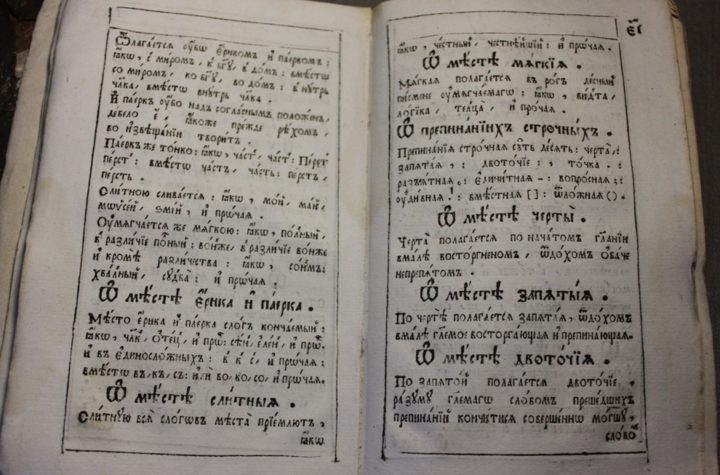 Ѿлагаетсѧ оубѡ ерикомъ и паеркомъ:
ꙗкѡ, с миромъ, к бг҃у, в домъ: вмѣстѡ
со миромъ, ко бг҃у, во домъ: внутрь
чл҃ка, вмѣстѡ внутрь чл҃ка.
И паеркъ оубо надъ согласнымъ положенъ,
дебело ꙗкоже прежде рѣхомъ,
во извѣщанїи творитъ.
Паеркъ же тонко: ꙗкѡ, част, част: Перст
перст: вмѣстѡ часть, часть: персть,
персть.
Слитною сливаетсѧ: ꙗкѡ, мой, май,
мѡѵсей, змїй, и прѡчаѧ.
Оумѧгчаетсѧ же мѧгкою: ꙗкѡ, полный,
в различїе воньже, в различїе вонже
и кромѣ различества: ꙗкѡ, сонмъ:
хвалный, судба: и прѡчаѧ.
Ѡ мѣстѣ ерика и паерка.
Мѣсто ерика и паерка слогъ кончаемый:
ꙗкѡ, чл҃к, отец, и прѡ: сѣн, елен, и прѡ.
и въ единосложныхъ: в к с, и прѡчаѧ:
вмѣстѡ въ, къ, съ: и во, ко, со, и прѡчаѧ.
Ѡ мѣстѣ слитныѧ.
Слитную всѧ слогѡвъ мѣста прїемлютъ,
ꙗкѡ
єі
ꙗкѡ, честный, честнѣйшїй: и прѡчаѧ.
Ѡ мѣстѣ мѧгкїѧ.
Мѧгкаѧ полагаетсѧ в рогъ десный
писмене оумѧгчаемагѡ: ꙗкѡ,
логїка, телца, и прочаѧ.
Ѡ препинанїихъ строчныхъ.
Препинанїѧ строчнаѧ суть десѧть: черта,
запѧтаѧ, : двоточїе: , точка .
разъѧтнаѧ, : единитнаѧ -: вопроснаѧ;:
оудивнаѧ !: вмѣстнаѧ []: ѿложнаѧ ().
Ѡ мѣстѣ черты.
Черта полагаетсѧ по начатомъ гл҃анїи
вмалѣ восторгненомъ, ѿдохомъ обаче
непрепѧтомъ.
Ѡ мѣстѣ запѧтыѧ.
По чертѣ полагаетсѧ запѧтаѧ, ѿдохомъ
вмалѣ гл҃емое восторгающаѧ и препинающаѧ.
Ѡ мѣстѣ двоточїѧ.
По запѧтой полагаетсѧ двоточїе,
разуму гл҃емагѡ словомъ прешедшихъ
препинанїй кончитисѧ совершеннѡ могшу,
слово